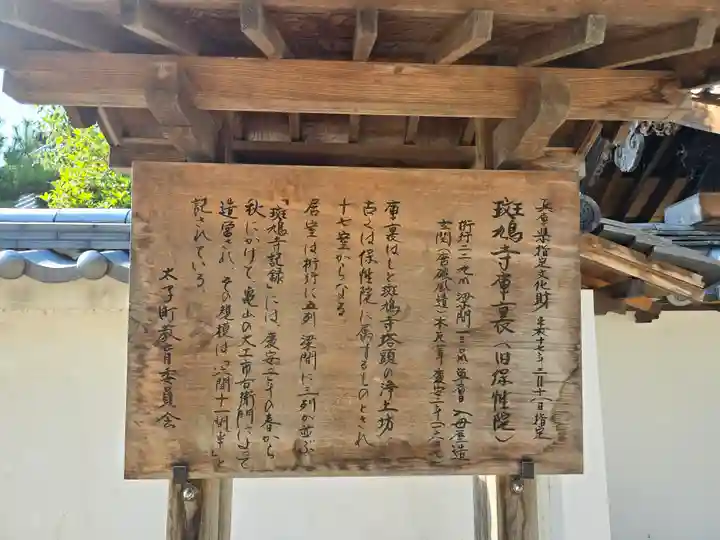 兵庫県指定文化財 平成十七年三月十八日指定
斑鳩寺庫裏(旧保性院)
桁行 梁間 単層 入母屋造
玄関(唐破風造)本瓦葺 慶安
庫裏はもと斑鳩寺塔頭の浄土坊
古くは保性院に属するものとされ
十七室からなる。
居室は桁行に五列 梁間に三列が並ぶ
「斑鳩寺記録」には、慶安二年の春から
秋にかけて亀山の大工市右衛門によって
造営され、その規模は「 間十一間半」と
記されている。
太子町教育委員会